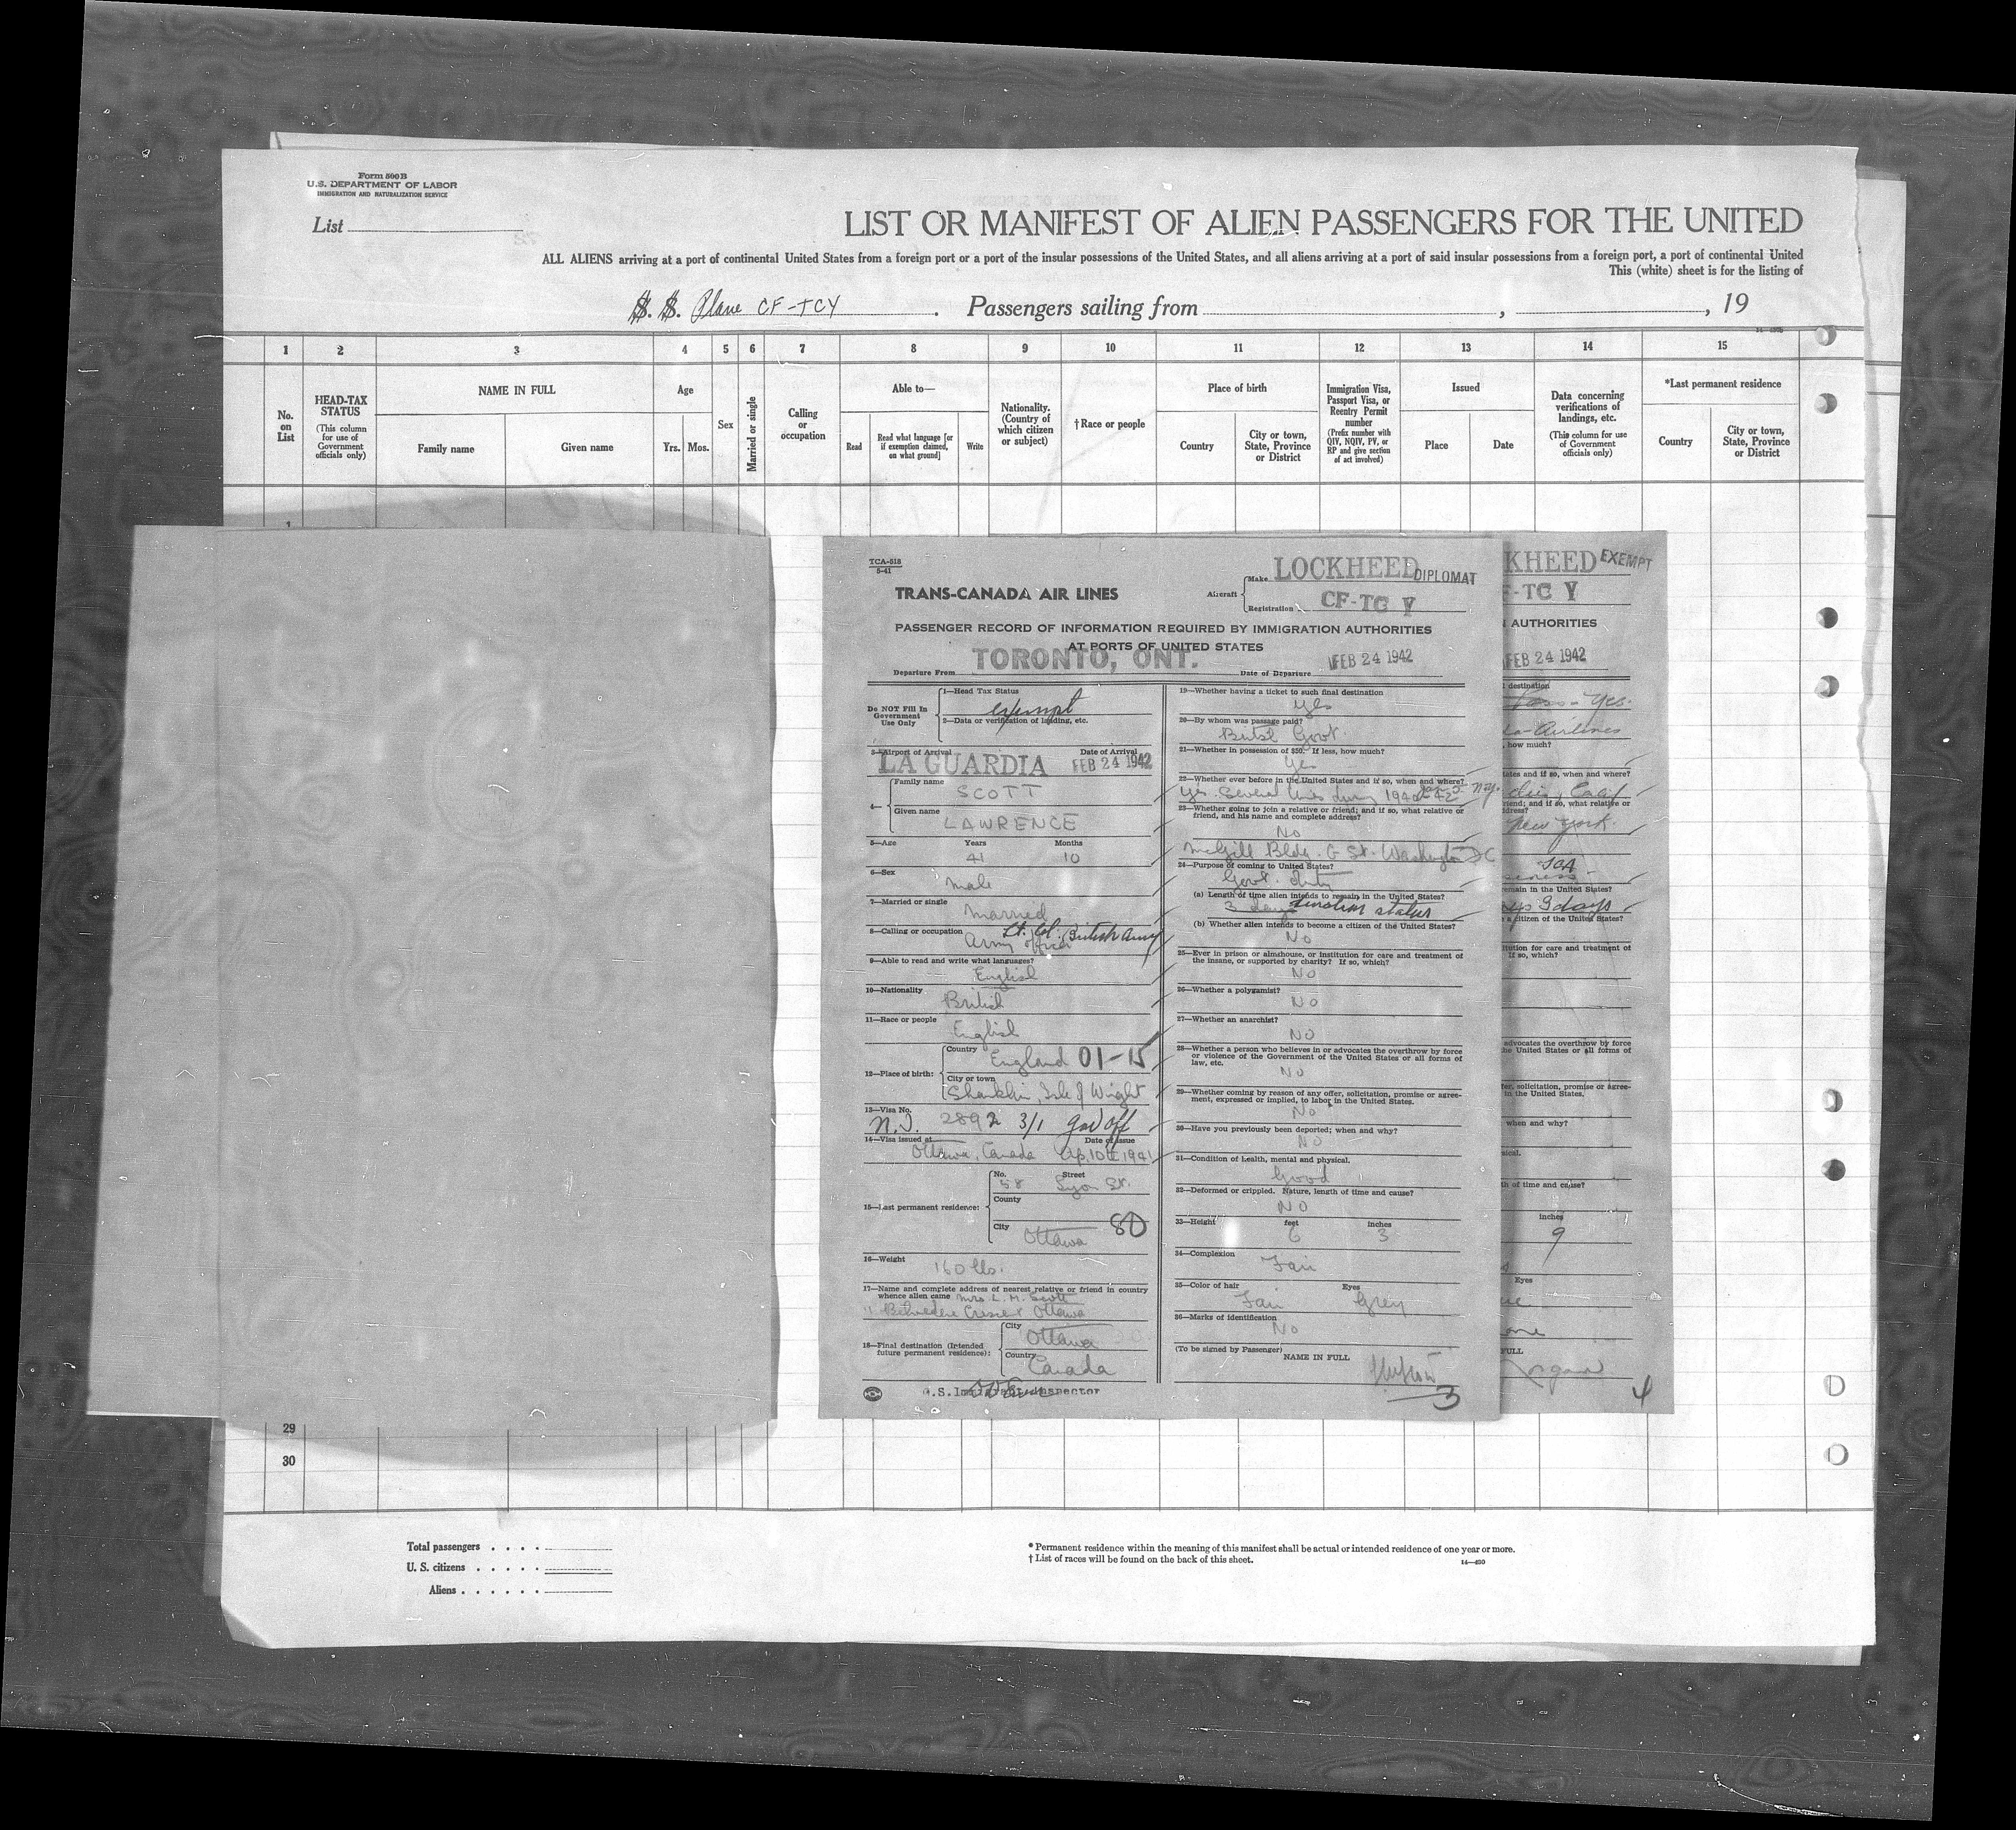 Form 500B
U.S. DEPARTMENT OF LABOR
IMMIGRATION AND NATURALIZATION SERVICE
List
LIST OR MANIFEST OF ALIEN PASSENGERS FOR THE UNITED
ALL ALIENS arriving at a port of continental United States from a foreign port or a port of the insular possessions of the United States, and all aliens arriving at a port of said insular possessions from a foreign port, a port of continental United
This (white) sheet is for the listing of
S. S. Plane CF-TCY. Passengers sailing from , , 19
1 2 3 4 5 6 7 8 9 10 11 12 13 14 15
No. on List
HEAD-TAX STATUS
(This column for use of Government officials only)
NAME IN FULL
Family name
Given name
Age
Yrs. Mos.
Sex
Married or single
Calling or occupation
Able to—
Read
Read what language [or if exemption claimed, on what ground]
Write
Nationality. (Country of which citizen or subject)
†Race or people
Place of birth
Country
City or town, State, Province or District
Immigration Visa, Passport Visa, or Reentry Permit number
(Prefix number with QIV, NQIV, PV, or RP and give section of act involved)
Issued
Place
Date
Data concerning verifications of landings, etc.
(This column for use of Government officials only)
*Last permanent residence
Country
City or town, State, Province or District
TCA-518
5-41
TRANS-CANADA AIR LINES
Aircraft
Make LOCKHEED DIPLOMAT
Registration CF-TC Y
PASSENGER RECORD OF INFORMATION REQUIRED BY IMMIGRATION AUTHORITIES
AT PORTS OF UNITED STATES
Departure From TORONTO, ONT. Date of Departure FEB 24 1942
Do NOT Fill In Government Use Only
1—Head Tax Status
exempt
2—Data or verification of landing, etc.
3—Airport of Arrival Date of Arrival
LA GUARDIA FEB 24 1942
4—
Family name
SCOTT
Given name
LAWRENCE
5—Age Years Months
41 10
6—Sex
Male
7—Married or single
Married
8—Calling or occupation Lt. Col. British Army
Army officer
9—Able to read and write what languages?
English
10—Nationality
British
11—Race or people
English
12—Place of birth:
Country
England 01-15
City or town
Shanklin, Isle of Wight
13—Visa No.
2892 3/1 gov Off
14—Visa issued at Date of Issue
Ottawa, Canada Ap. 10 1941
15—Last permanent residence:
No. Street
58 Lyon St.
County
City 80
Ottawa
16—Weight
160 lbs.
17—Name and complete address of nearest relative or friend in country
whence alien came Mrs. L. M. Scott
11 Belvedere Crescent Ottawa
18—Final destination (Intended future permanent residence):
City
Ottawa
Country
Canada
U.S. Immigrant Inspector
19—Whether having a ticket to such final destination
Yes
20—By whom was passage paid?
British Govt.
21—Whether in possession of $50. If less, how much?
Yes
22—Whether ever before in the United States and if so, when and where?
Yes. Several times during 1941-42
23—Whether going to join a relative or friend; and if so, what relative or
friend, and his name and complete address?
No
McGill Bldg. G St. Washington DC
24—Purpose of coming to United States?
Govt. duty
(a) Length of time alien intends to remain in the United States?
3 days duration status
(b) Whether alien intends to become a citizen of the United States?
No
25—Ever in prison or almshouse, or institution for care and treatment of
the insane, or supported by charity? If so, which?
No
26—Whether a polygamist?
No
27—Whether an anarchist?
No
28—Whether a person who believes in or advocates the overthrow by force
or violence of the Government of the United States or all forms of
law, etc.
No
29—Whether coming by reason of any offer, solicitation, promise or agree-
ment, expressed or implied, to labor in the United States.
No
30—Have you previously been deported; when and why?
No
31—Condition of health, mental and physical.
Good
32—Deformed or crippled. Nature, length of time and cause?
NO
33—Height feet inches
6 3
34—Complexion
Fair
35—Color of hair Eyes
Fair Grey
36—Marks of identification
No
(To be signed by Passenger)
NAME IN FULL
3
KHEED EXEMPT
F-TC Y
AUTHORITIES
FEB 24 1942
destination
Yes.
Airlines
, how much?
tates and if so, when and where?
Calif
riend; and if so, what relative or
dress?
New York.
TCA
remain in the United States?
3 days
a citizen of the United States?
itution for care and treatment of
If so, which?
advocates the overthrow by force
he United States or all forms of
fer, solicitation, promise or agree-
in the United States.
when and why?
sical.
th of time and cause?
inches
9
Eyes
FULL
4
29
30
Total passengers
U. S. citizens
Aliens
* Permanent residence within the meaning of this manifest shall be actual or intended residence of one year or more.
† List of races will be found on the back of this sheet.
14—430